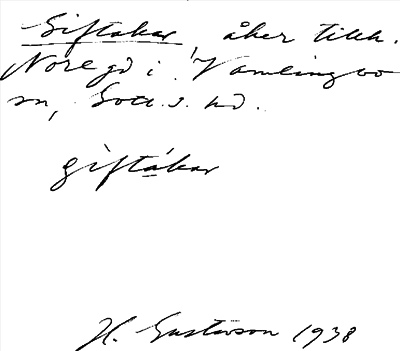 Giftakar, åker tillh.
Noregd i Vamlingbo
sn, Gotl. s. hd.
giftákar
H. Gustavson 1938